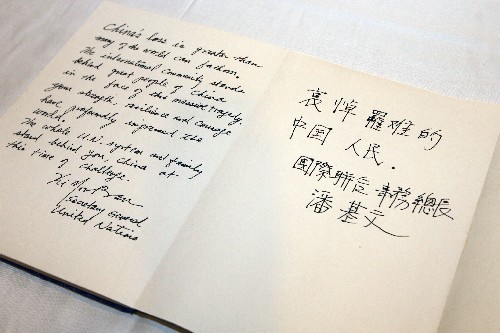 China's loss is greater than
many of the world can fathom.
The international community stands
behind great people of China
in the face of this massive tragedy.
Your strength, resilience and courage
have profoundly impressed the
world.
The whole U.N. system and family
stand behind you, China at
this time of challenge.
Ban
Secretary General
United Nations
哀悼罹难的
中国人民.
國際聯合事務總長
潘基文